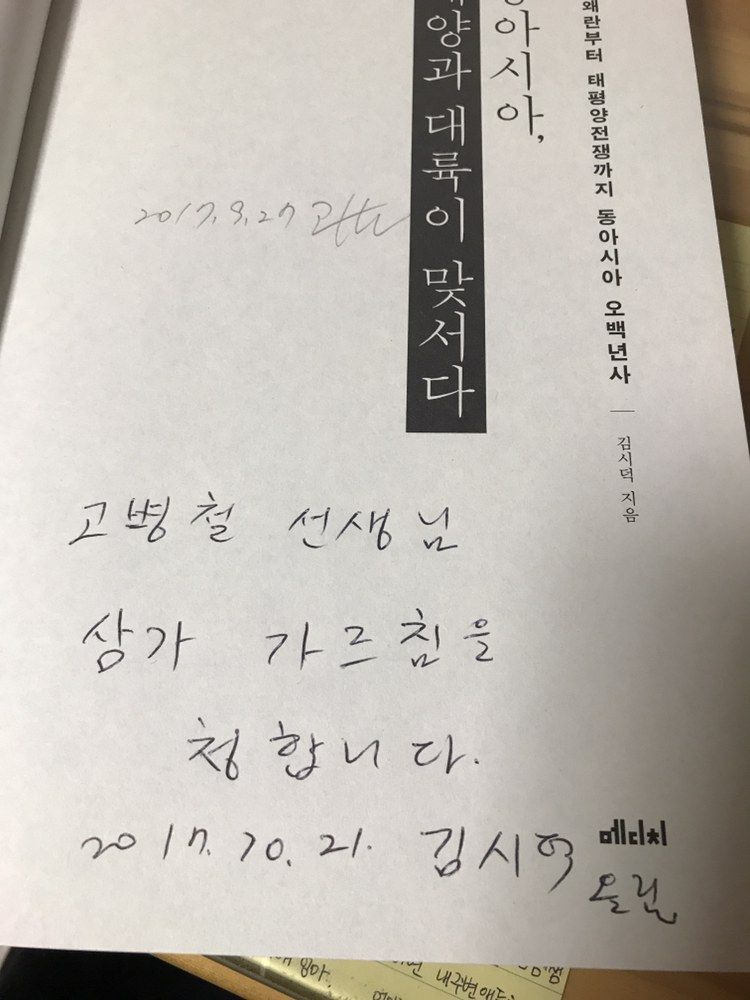 왜란부터 태평양전쟁까지 동아시아 오백년사
김시덕 지음
동아시아,
해양과 대륙이 맞서다
2017.9.27
고병철 선생님
삼가 가르침을
청합니다.
2017.10.21. 김시덕
메디치
올림